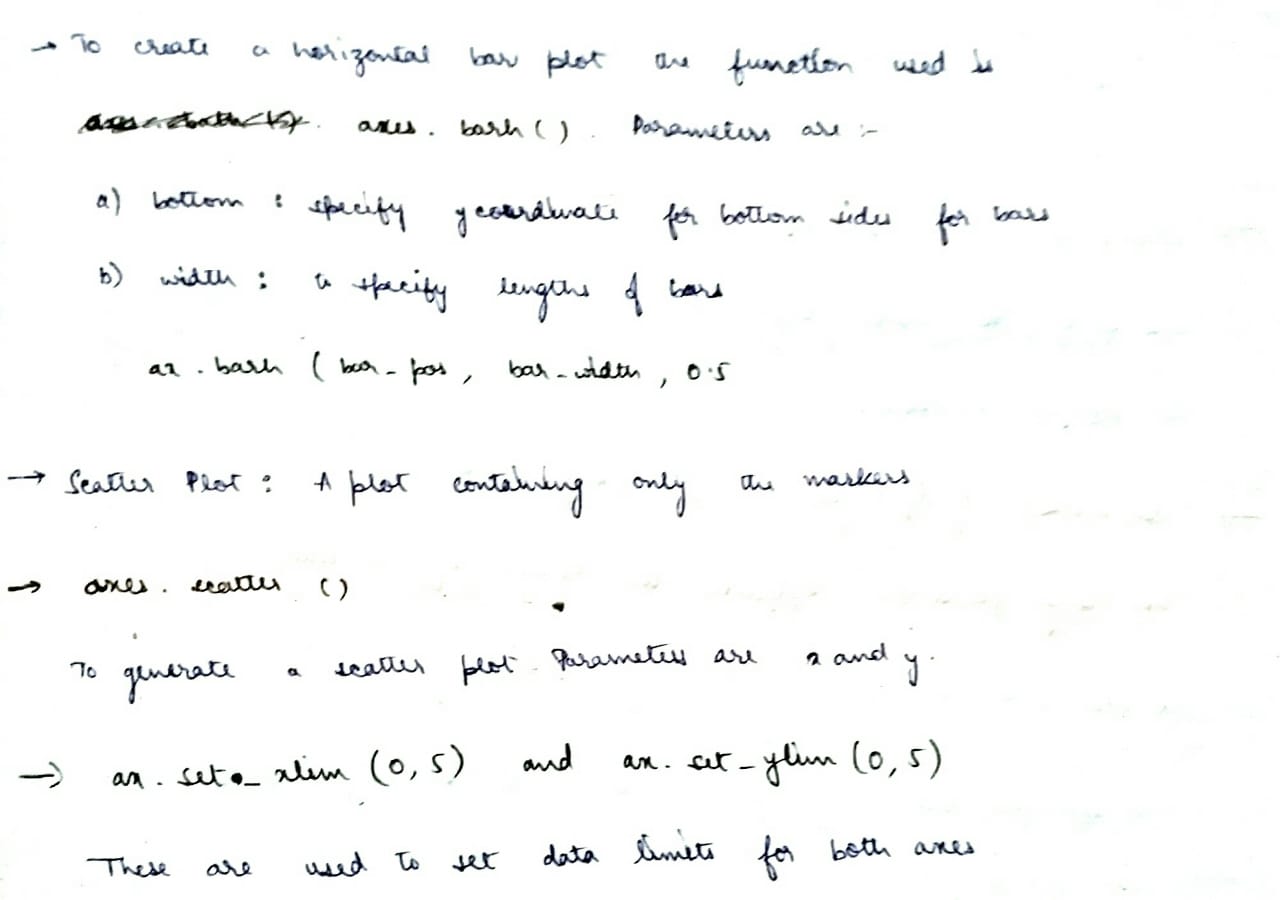 → To create a horizontal bar plot the function used is
axes. barh(). Parameters are :-
a) bottom : specify y coordinate for bottom sides for bars
b) width : to specify lengths of bars
ax. barh (bar-pos, bar-width, 0.5
→ Scatter Plot : A plot containing only the markers
→ axes. scatter ()
To generate a scatter plot. Parameters are x and y.
→ ax. set_xlim (0, 5) and ax. set_ylim (0, 5)
These are used to set data limits for both axes